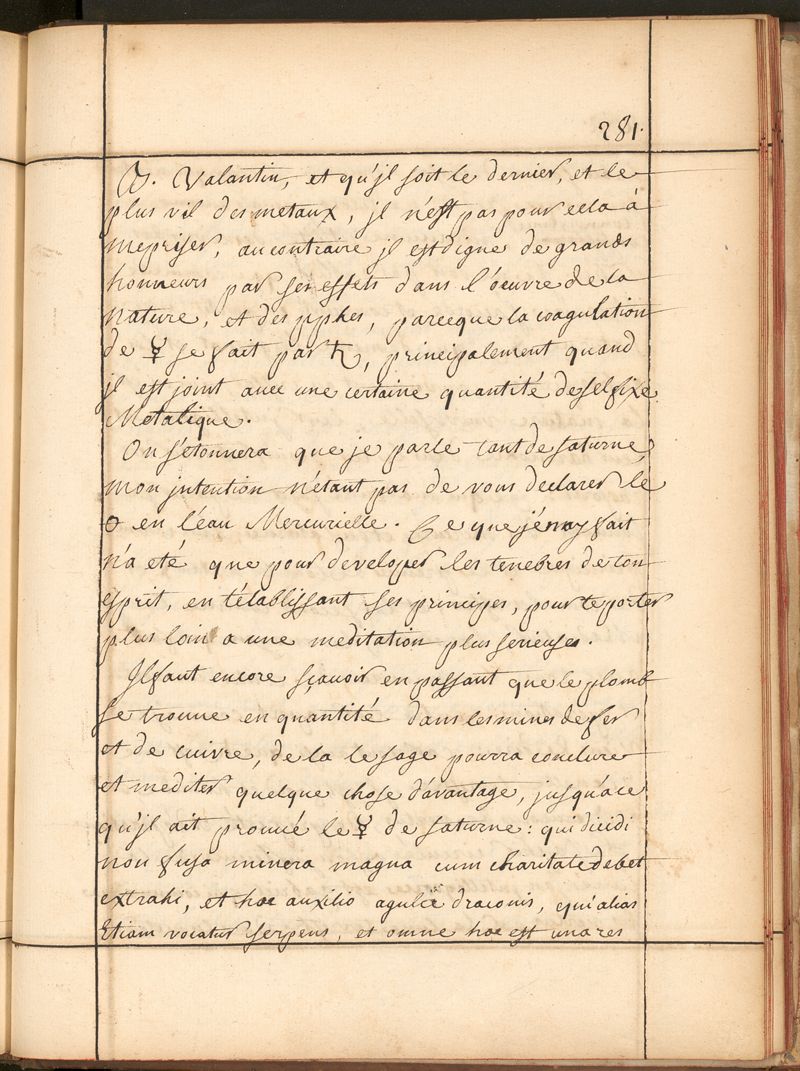 281.
B. Valantin, et qu'jl soit le dernier, et le
plus vil des metaux, jl n'est pas pour cela à
mepriser, au contraire jl est digne de grands
honneurs par ses effets dans l'oeuvre de la
nature, et des pphes, parceque la coagulation
de ☿ se fait par ♄, principalement quand
jl est joint avec une certaine quantité de sel fixe
Metalique.
On s'etonnera que je parle tant de saturne,
mon jntention n'étant pas de vous declarer le
en l'éau Mercurielle. Ce que j'en ay fait
n'a eté que pour developer les tenebres de ton
esprit, en t'établissant ses principes, pour te porter
plus loin a une meditation plus serieuse.
Jl faut encore sçauoir en passant que le plomb
se trouue en quantité dans les mines de fer
et de cuivre, de la le sage pourra conclure
et mediter quelque chose d'avantage, jusqu'a ce
qu'jl ait prouué le ☿ de saturne: qui dicidi
non fusa minera magna cum charitate debet
extrahi, et hoc auxilio draconis, qui alias
Etiam vocatur serpens, et omne hoc est una res